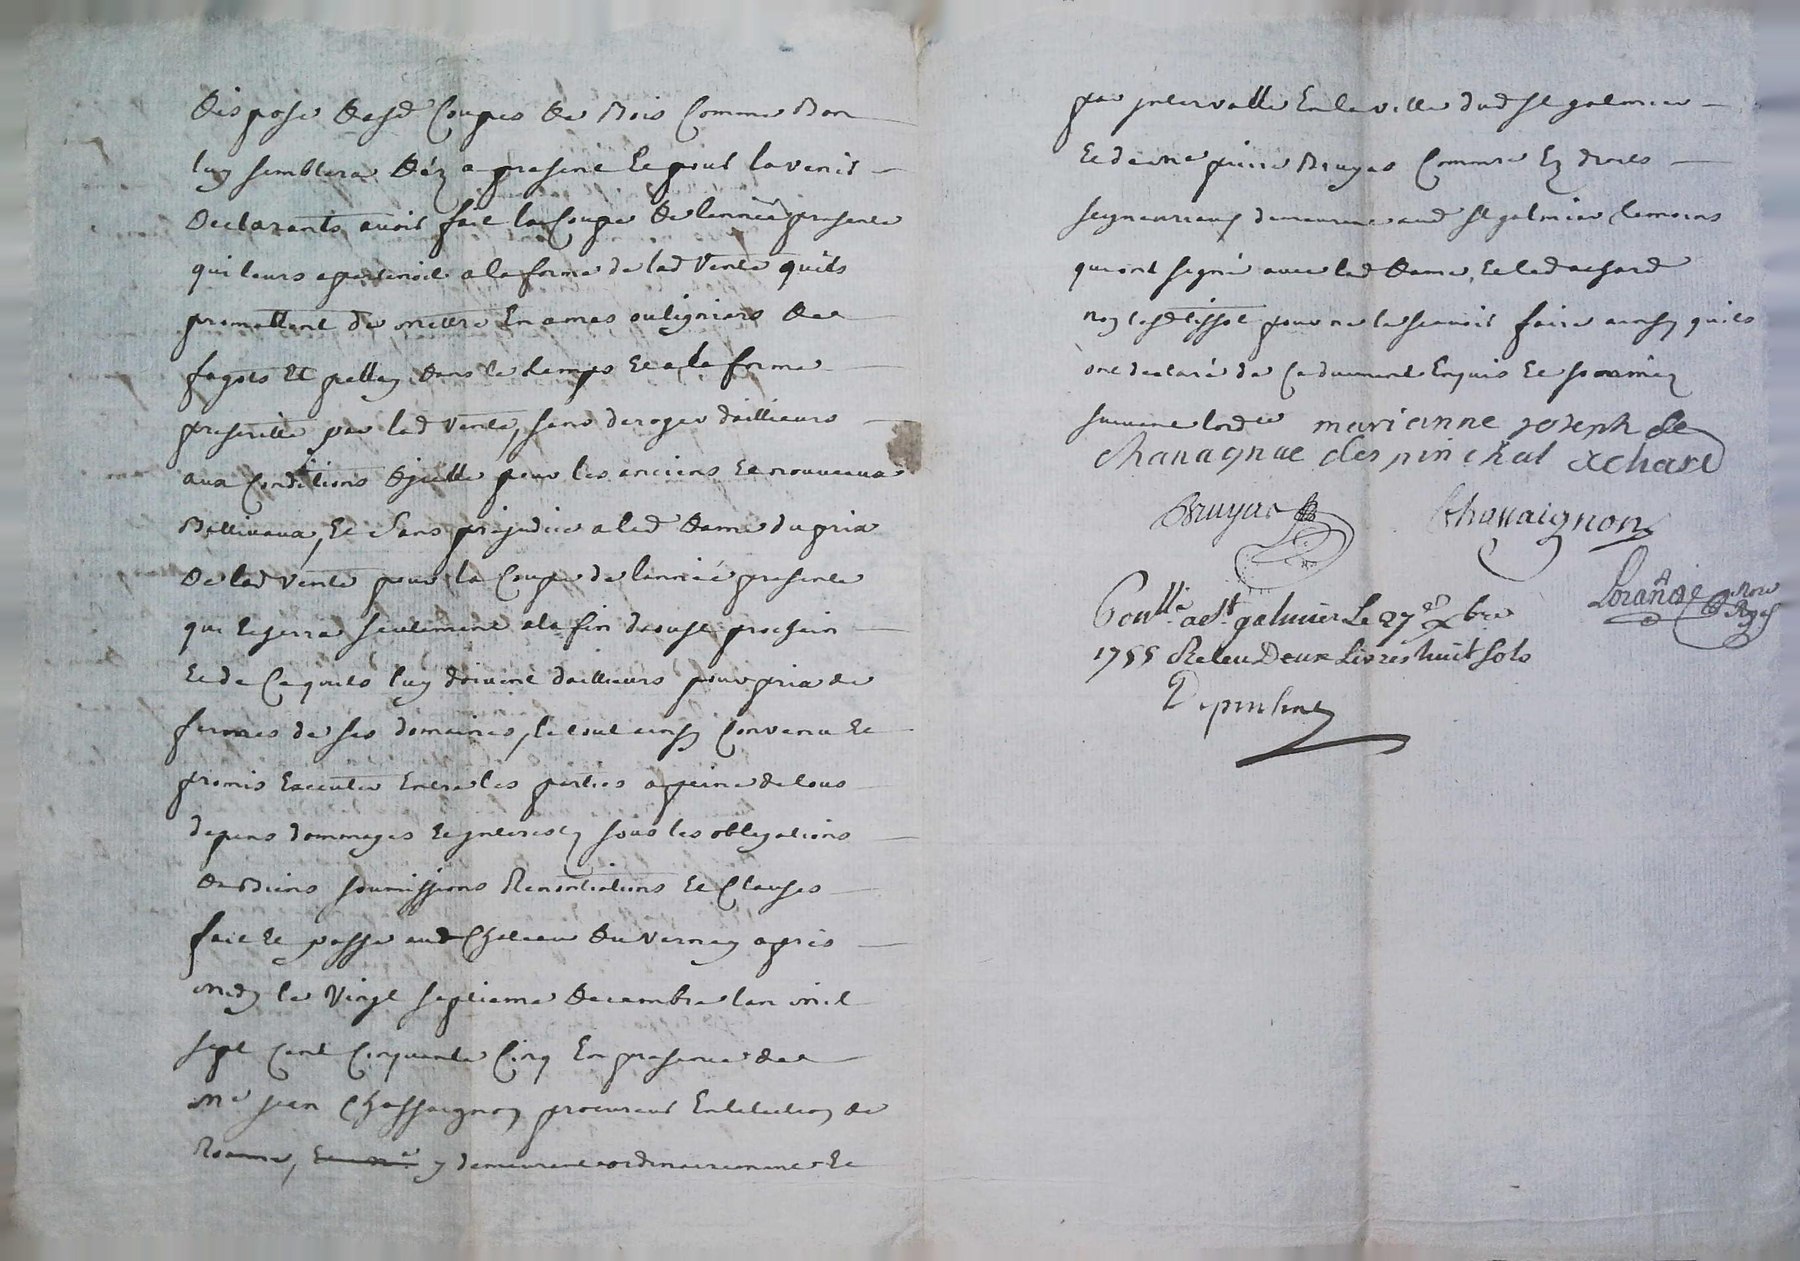 dispose desd Coupes de Bois Comme Bon
luy semblera déz a present Et pour lavenir
declarants avoir fait la Coupe de lannéé presente
qui leurs apartenoit a la forme de lad vente quils
promettent de mettre En amas ou ligniers des
fagots Et pellez dans le temps Et a la forme
prescritte par lad vente, sans deroger dailleurs
aux Conditions djcelle pour les anciens Et nouveaux
Ballivaux, Et sans prejudice a lad dame du prix
de lad vente pour la Coupe de lannéé presente
qui Echerra seulement a la fin daoust prochain
Et de Ce quils luy doivent dailleurs pour prix de
fermes de ses domaines, le tout ainsy Convenu Et
promis Executer Entre les parties a peine de tous
depens dommages Et jnterestz sous les obligations
de Biens soumissions Renontiations Et Clauses
fait Et passé aud Chateau du Verney apres
midy le vingt septieme decembre lan mil
sept Cent Cinquante Cinq En presence de
me jean Chassaignon procureur En lelection de
Roanne, y demeurant ordinairement Et
par jntervalle En la ville dud st galmier
Et de me pierre Bruyas Commre Ez droits
seigneuriaux demeurant aud st galmier temoins
qui ont signé avec lad dame, Et led achard
noy lesd tissot pour ne le scavoir faire ainsy quils
ont declaré de Ce duement Enquis Et sommez
suivant lordce marianne joseph de
Chavagnac despinchal achard
Bruyas Chassaignon
Conlle. a st. galmier Le 27e Xbre
1755 Receu Deux Livres huit sols